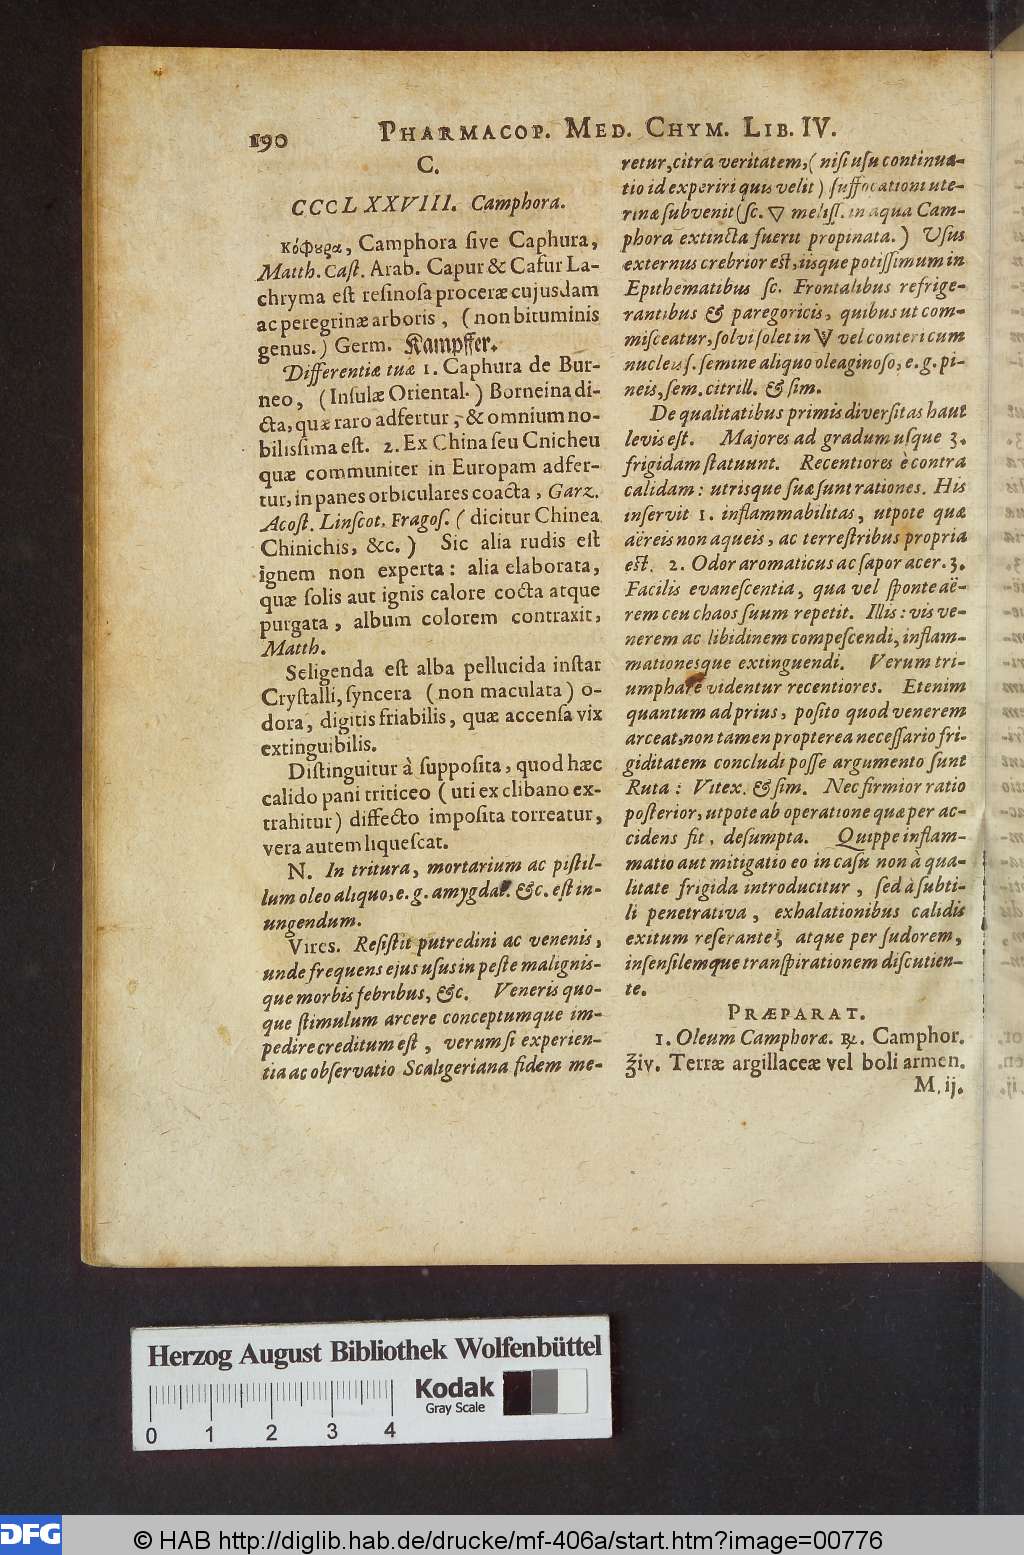 190
PHARMACOP. MED. CHYM. LIB. IV.
C.
CCCLXXVIII. Camphora.
κόφουρα, Camphora ſive Caphura,
Matth. Caſt. Arab. Capur & Cafur La-
chryma eſt reſinoſa proceræ cujusdam
ac peregrinæ arboris, (non bituminis
genus.) Germ. Kampffer.
Differentiæ tuæ 1. Caphura de Bur-
neo, (Inſulæ Oriental.) Borneina di-
cta, quæ raro adfertur, & omnium no-
biliſſima eſt. 2. Ex China ſeu Cnicheu
quæ communiter in Europam adfer-
tur, in panes orbiculares coacta, Garz.
Acoſt. Linſcot. Fragoſ. (dicitur Chinea
Chinichis, &c.) Sic alia rudis eſt
ignem non experta: alia elaborata,
quæ ſolis aut ignis calore cocta atque
purgata, album colorem contraxit,
Matth.
Seligenda eſt alba pellucida inſtar
Cryſtalli, ſyncera (non maculata) o-
dora, digitis friabilis, quæ accenſa vix
extinguibilis.
Diſtinguitur à ſuppoſita, quod hæc
calido pani triticeo (uti ex clibano ex-
trahitur) diffecto impoſita torreatur,
vera autem liqueſcat.
N. In tritura, mortarium ac piſtil-
lum oleo aliquo, e. g. amygdal. &c. eſt in-
ungendum.
Vires. Reſiſtit putredini ac venenis,
unde frequens ejus uſus in peſte malignis-
que morbis febribus, &c. Veneris quo-
que ſtimulum arcere conceptumque im-
pedire creditum eſt, verum ſi experien-
tia ac obſervatio Scaligeriana fidem me-
retur, citra veritatem, (niſi uſu continua-
tio id experiri quis velit) ſuffocationi ute-
rinæ ſubvenit (ſc. 🜄 meliſſ. in aqua Cam-
phora extincta fuerit propinata.) Uſus
externus crebrior eſt, iisque potiſſimum in
Epithematibus ſc. Frontalibus refrige-
rantibus & paregoricis, quibus ut com-
miſceatur, ſolvi ſolet in vel conteri cum
nucleis ſ. ſemine aliquo oleaginoſo, e. g. pi-
neis, ſem. citrill. & ſim.
De qualitatibus primis diverſitas haut
levis eſt. Majores ad gradum uſque 3.
frigidam ſtatuunt. Recentiores è contra
calidam: utrisque ſuæ ſunt rationes. His
inſervit 1. inflammabilitas, utpote quæ
aëreis non aqueis, ac terreſtribus propria
eſt. 2. Odor aromaticus ac ſapor acer. 3.
Facilis evaneſcentia, qua vel ſponte aë-
rem ceu chaos ſuum repetit. Illis: vis ve-
nerem ac libidinem compeſcendi, inflam-
mationesque extinguendi. Verum tri-
umphare videntur recentiores. Etenim
quantum ad prius, poſito quod venerem
arceat, non tamen propterea neceſſario fri-
giditatem concludi poſſe argumento ſunt
Ruta: Vitex. & ſim. Nec firmior ratio
poſterior, utpote ab operatione quæ per ac-
cidens fit, deſumpta. Quippe inflam-
matio aut mitigatio eo in caſu non à qua-
litate frigida introducitur, ſed à ſubti-
li penetrativa, exhalationibus calidis
exitum reſerante, atque per ſudorem,
inſenſilemque tranſpirationem diſcutien-
te.
PRÆPARAT.
1. Oleum Camphoræ. ℞. Camphor.
℥iv. Terræ argillaceæ vel boli armen.
M. ij.
Herzog August Bibliothek Wolfenbüttel
Kodak
Gray Scale
0 1 2 3 4
DFG
© HAB http://diglib.hab.de/drucke/mf-406a/start.htm?image=00776